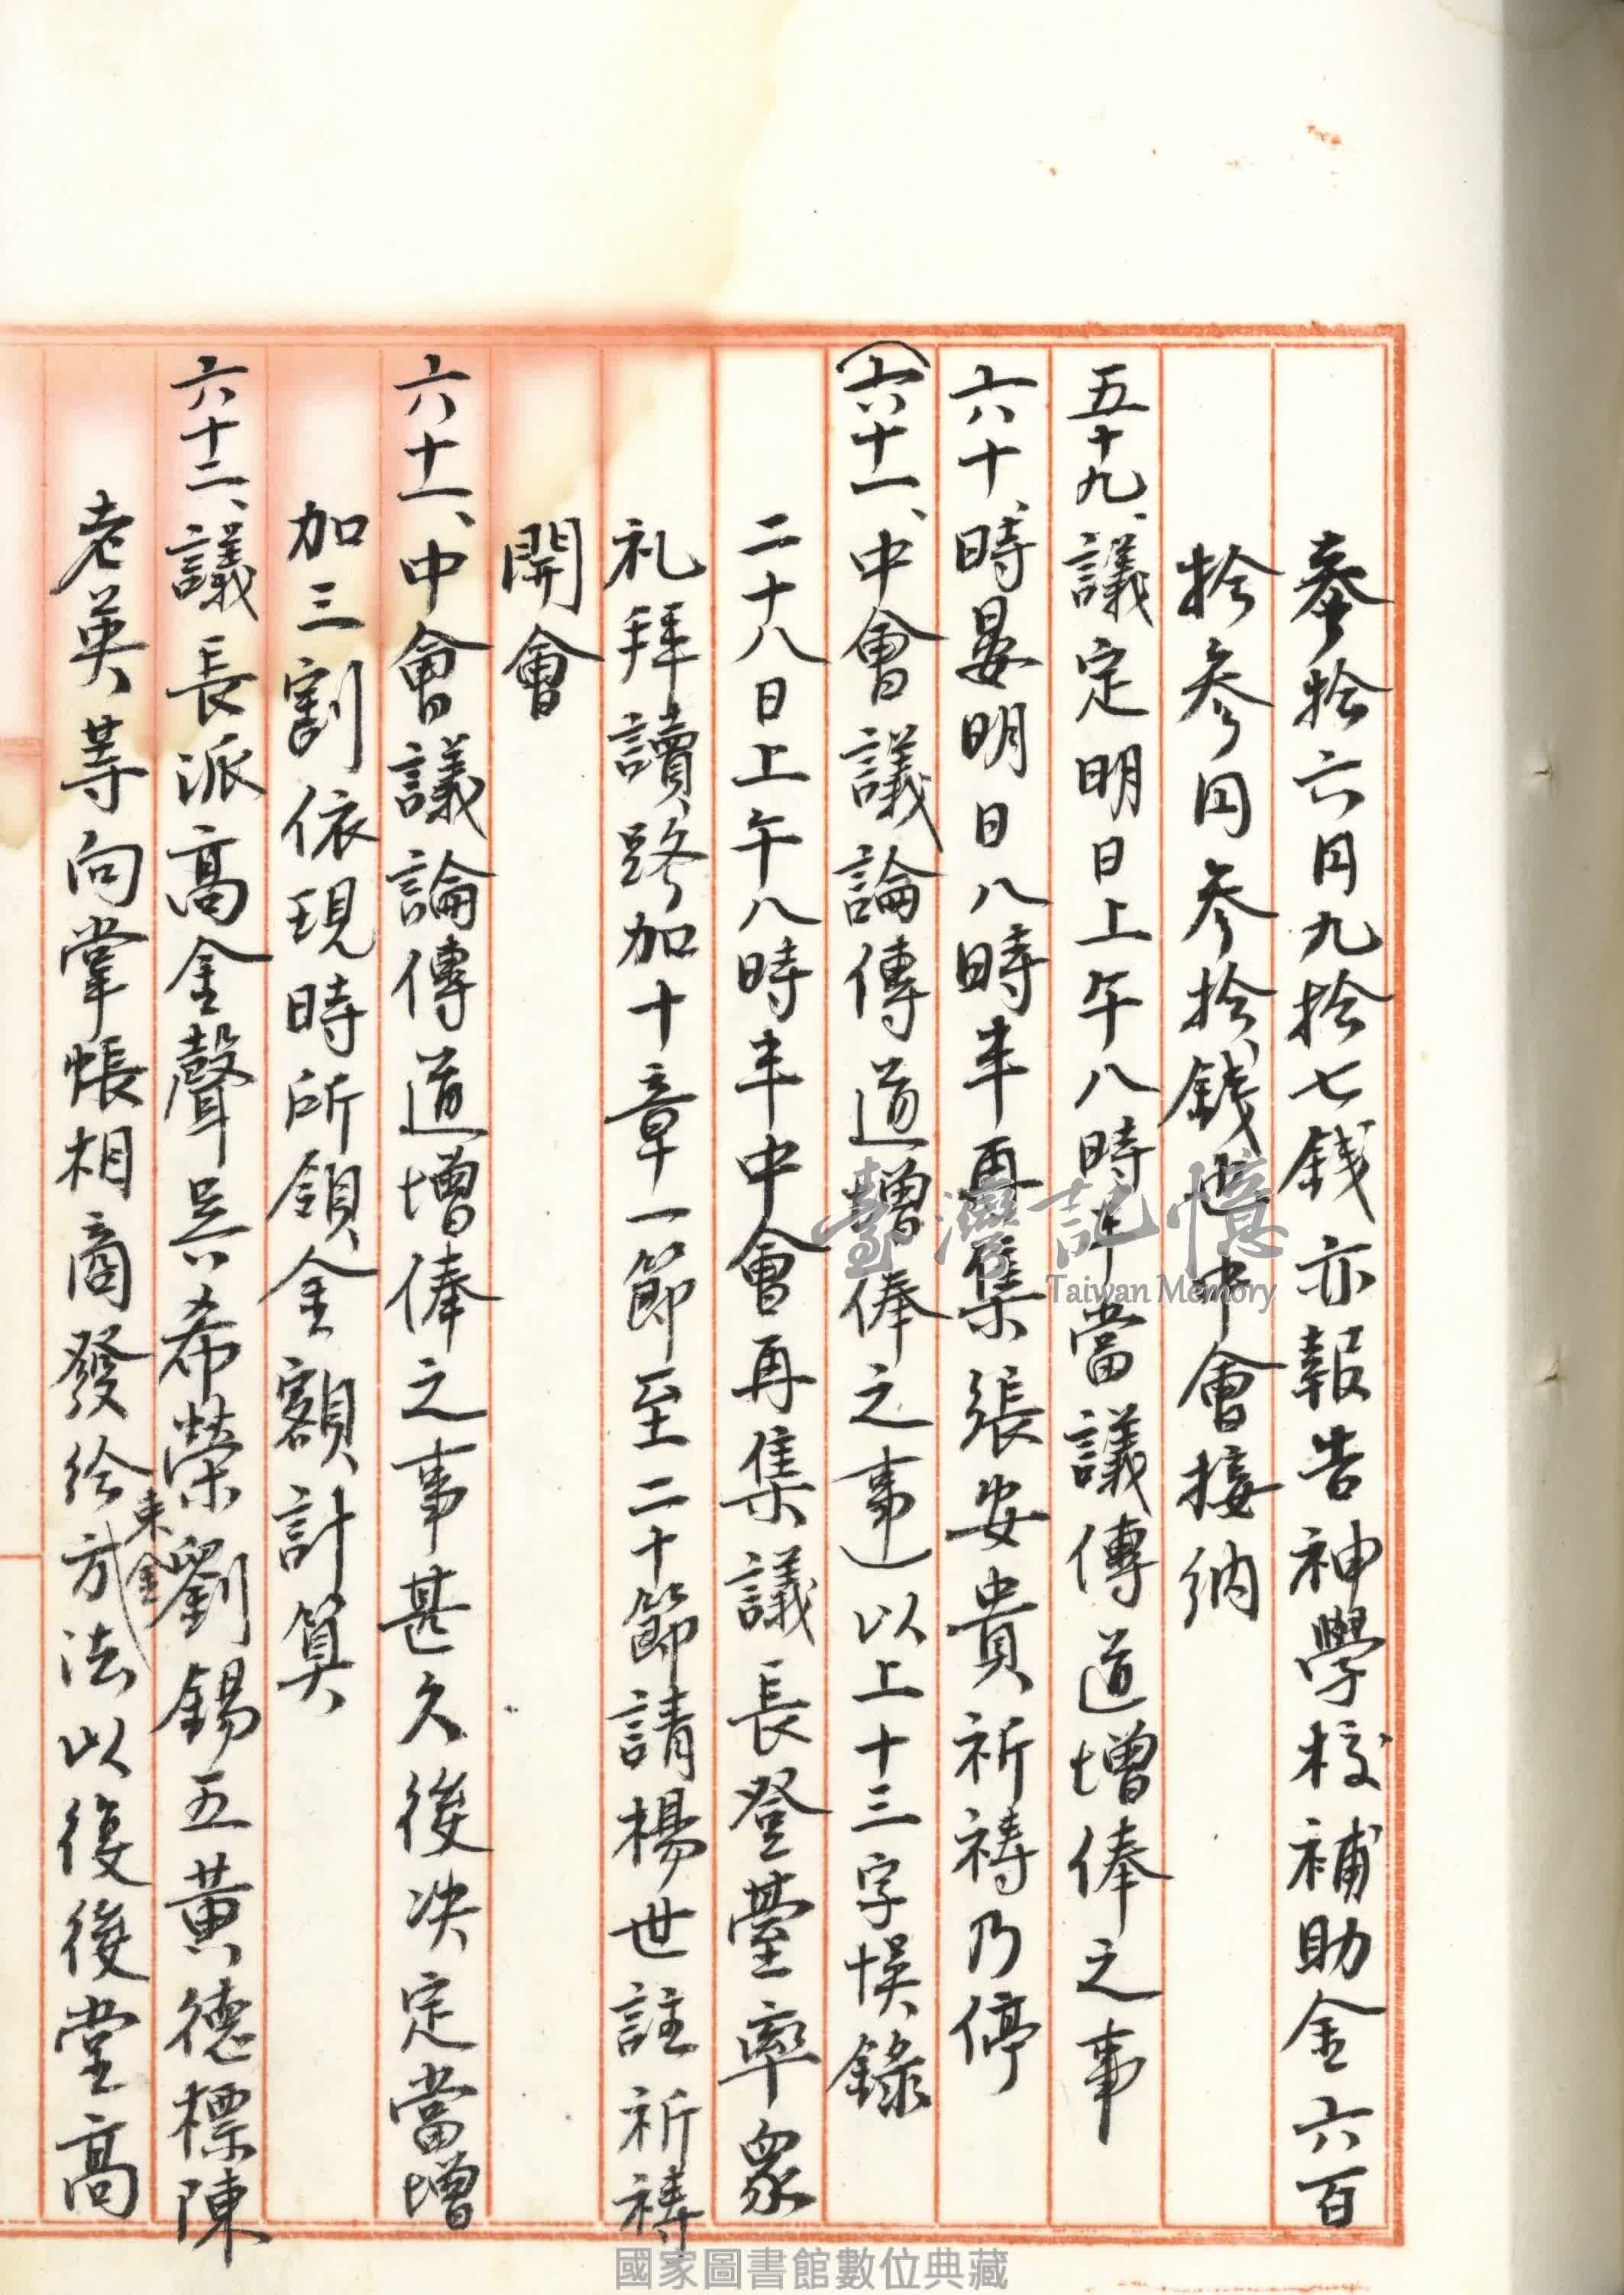 叁拾六円九拾七錢亦報告神學校補助金六百
拾參円參拾錢也中會接納
五十九、議定明日上午八時半當議傳道增俸之事
六十、時晏明日八時半再集張安貴祈禱乃停
(六十一、中會議論傳道增俸之事)以上十三字悮錄
二十八日上午八時半中會再集議長登臺率眾
礼拜讀路加十章一節至二十節請楊世註祈禱
開會
六十一、中會議論傳道增俸之事甚久後决定當增
加三割依現時所領金額計算
六十二、議長派高金聲吳希榮劉錫五黃德標陳
老英等向掌帳相商發給方法以復後堂高
束金
臺灣記憶
Taiwan Memory
國家圖書館數位典藏